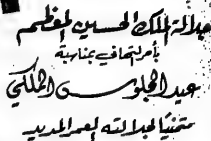 جلالة الملك الحسين المعظم
بأمر التعافي بمناسبة
عيد الجلوس الملكي
متمنياً لجلالته العمر المديد